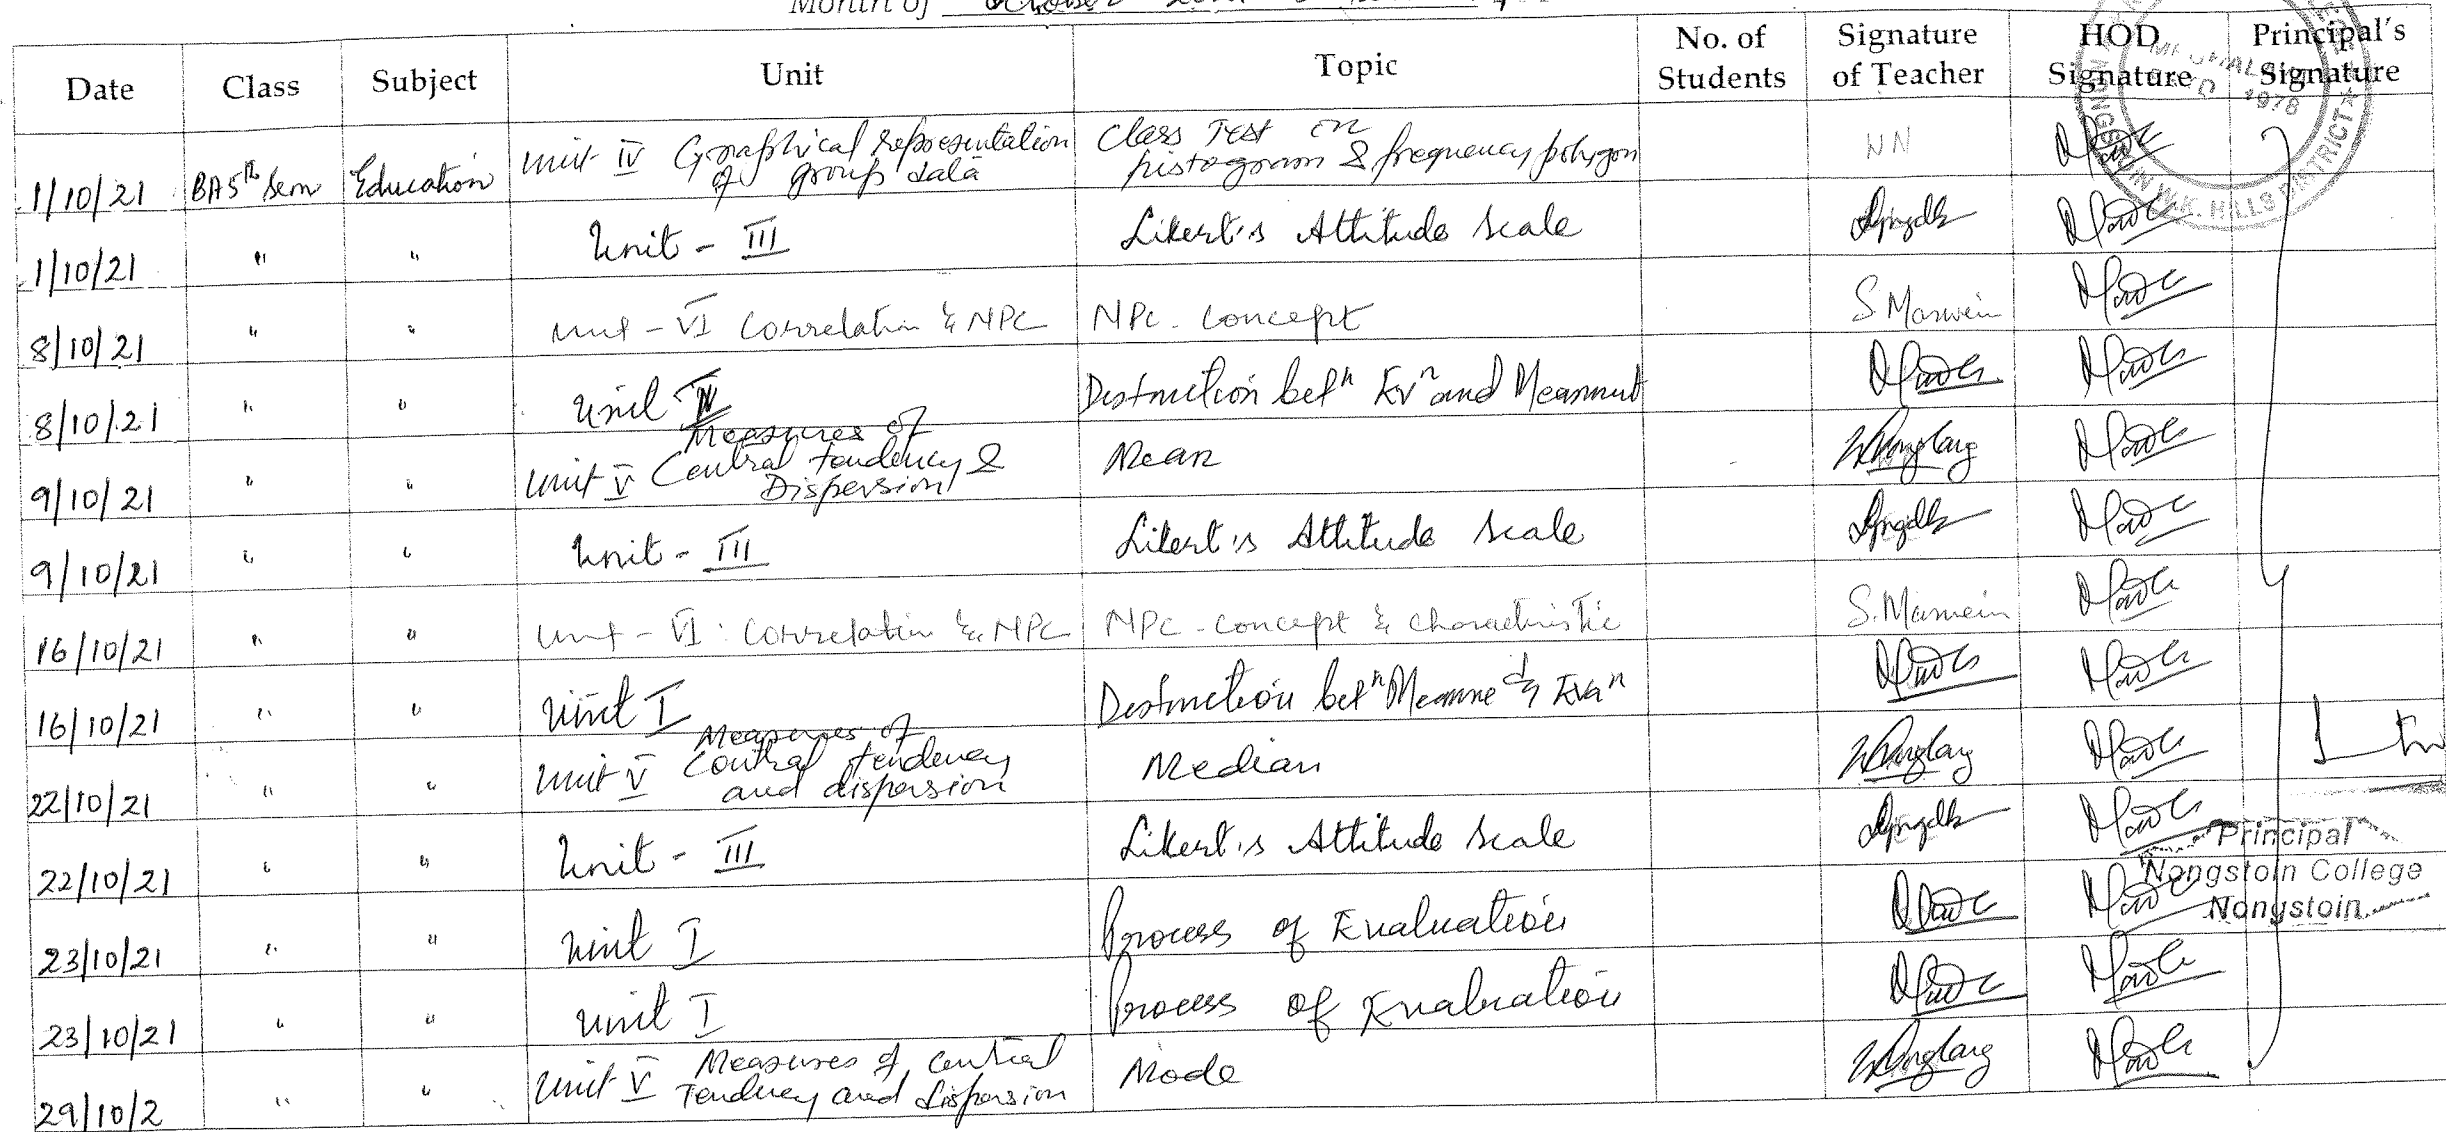 Month of October
Date Class Subject Unit Topic No. of Students Signature of Teacher HOD Signature Principal's Signature
1/10/21 BA5th Sem Education Unit IV Graphical representation of group data Class Test on histogram & frequency polygon NN
1/10/21 " " Unit - III Likert's Attitude Scale
8/10/21 " " Unit - VI Correlation & NPC NPC. Concept S Marwein
8/10/21 " " Unit Distinction betn Evn and
9/10/21 " " Unit V Measures of Central tendency & Dispersion Mean
9/10/21 " " Unit - III Likert's Attitude Scale
16/10/21 " " Unit - VI : Correlation & NPC NPC - Concept & Characteristic S. Marwein
16/10/21 " " Unit I Distinction betn Evan
22/10/21 " " Unit V Measures of Central tendency and dispersion Median
22/10/21 " " Unit - III Likert's Attitude Scale
23/10/21 " " Unit I Process of Evaluation
23/10/21 " " Unit I Process of Evaluation
29/10/2 " " Unit V Measures of Central Tendency and dispersion Mode
Principal
Nongstoin College
Nongstoin
1978
W.K. HILLS DISTRICT